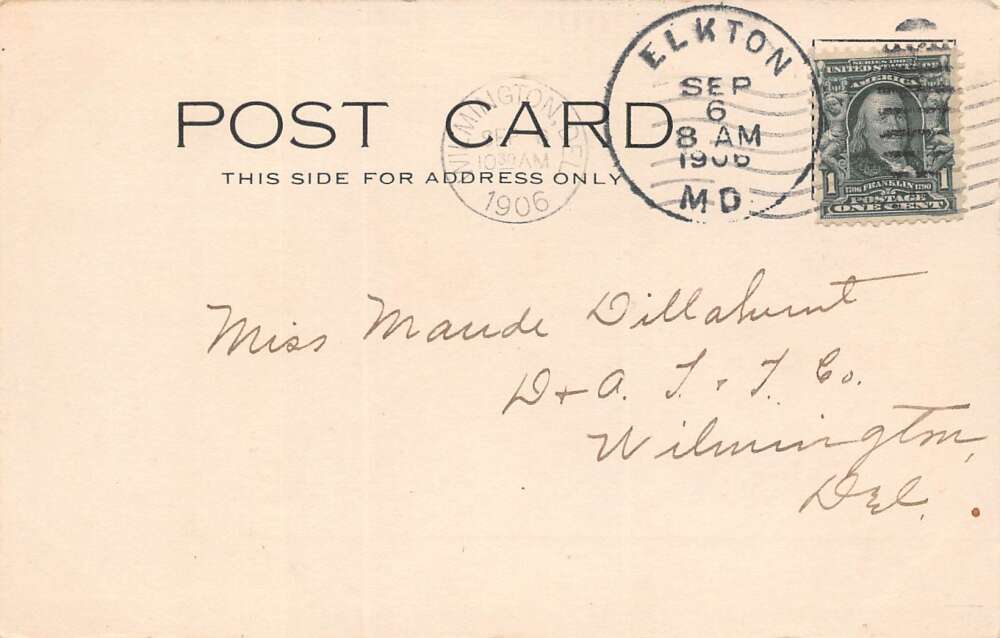 POST CARD
THIS SIDE FOR ADDRESS ONLY
WILMINGTON, DEL.
10 30 AM
1906
ELKTON
SEP
6
8 AM
1906
MD
SERIES 1902
UNITED STATES OF
AMERICA
1706 FRANKLIN 1790
1 1
POSTAGE
ONE CENT
Miss Maude Dillahunt
D & A. T. & T. Co.
Wilmington,
Del.